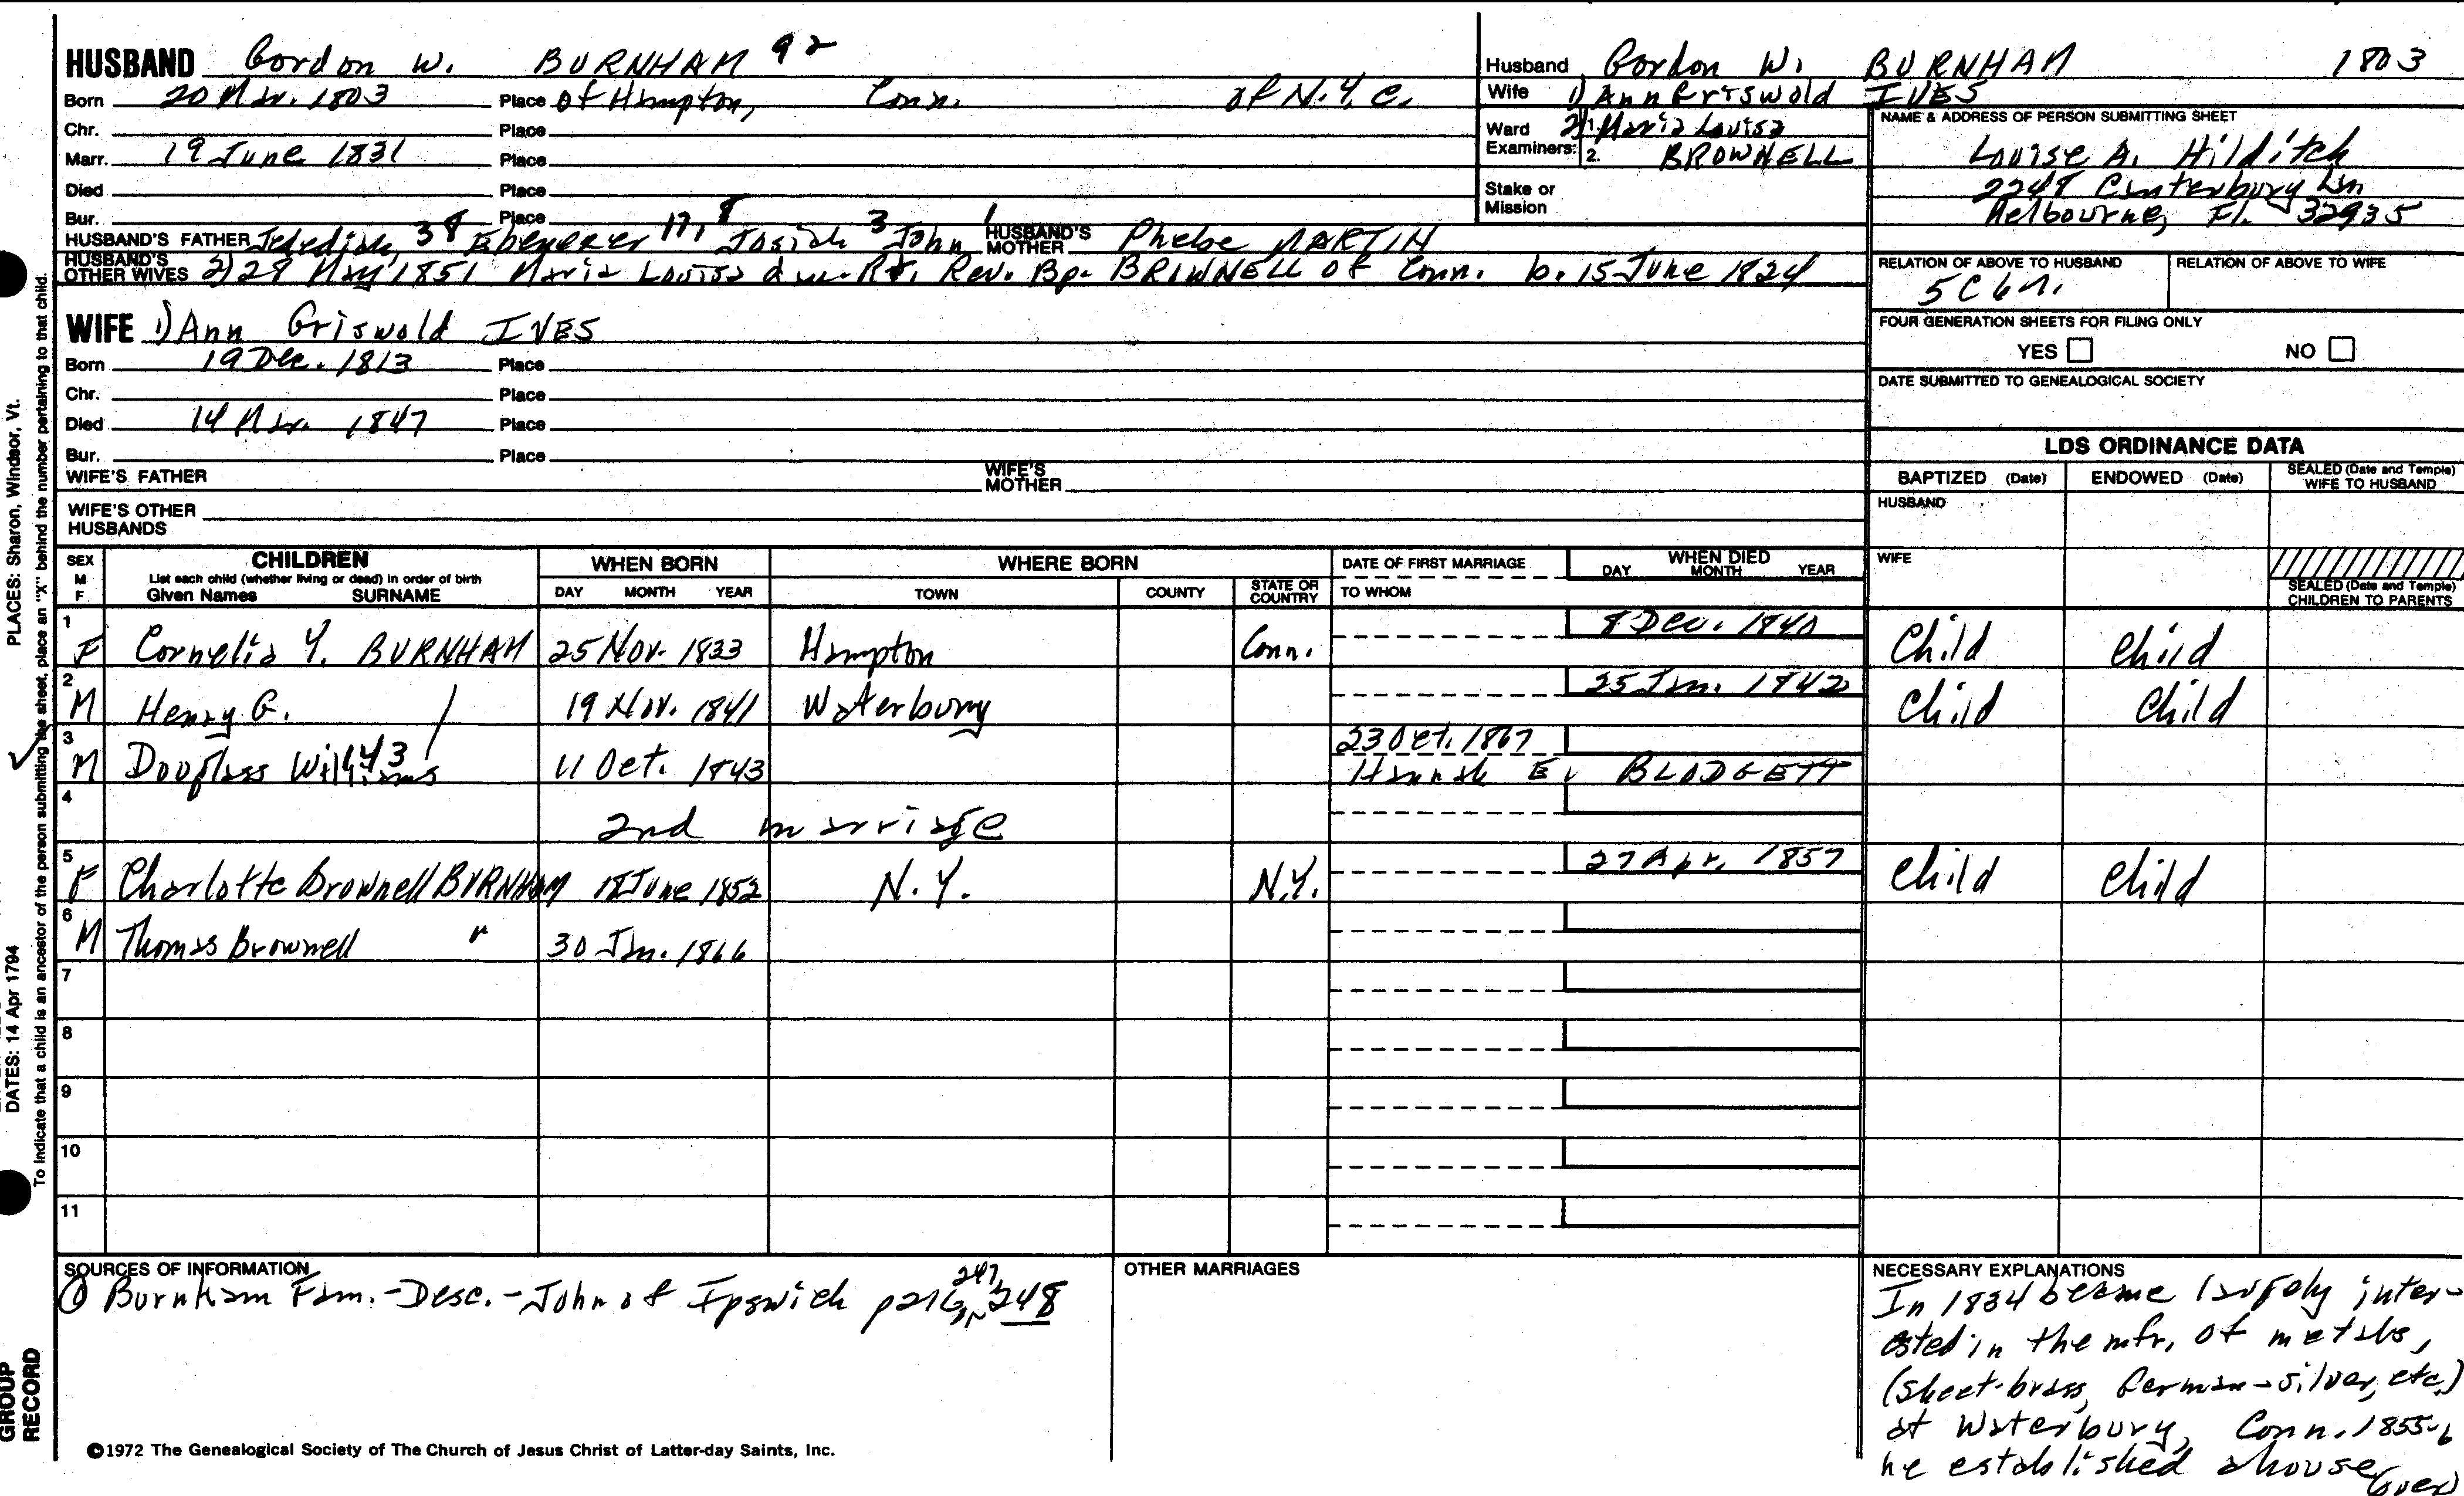 HUSBAND Gordon W. BURNHAM 92
Born 20 Mar. 1803 Place of Hampton, Conn. of N.Y.C.
Chr. Place
Marr. 19 June 1831 Place
Died Place
Bur. Place
HUSBAND'S FATHER Jedediah, 38 Ebenezer 17, 8 Josiah 3 John 1 HUSBAND'S MOTHER Phebe MARTIN
HUSBAND'S OTHER WIVES 2) 28 May 1851 Maria Louisa dau. Rt. Rev. Bp. BROWNELL of Conn. b. 15 June 1824
WIFE 1) Ann Griswold IVES
Born 19 Dec. 1813 Place
Chr. Place
Died 14 Mar. 1847 Place
Bur. Place
WIFE'S FATHER WIFE'S MOTHER
WIFE'S OTHER HUSBANDS
Husband Gordon W. BURNHAM 1803
Wife 1) Ann Griswold IVES
Ward 2) 1. Maria Louisa
Examiners: 2. BROWNELL
Stake or Mission
NAME & ADDRESS OF PERSON SUBMITTING SHEET
Louise A. Hilditch
2248 Canterbury Ln
Melbourne, Fl. 32935
RELATION OF ABOVE TO HUSBAND RELATION OF ABOVE TO WIFE
5C 6r.
FOUR GENERATION SHEETS FOR FILING ONLY
YES NO
DATE SUBMITTED TO GENEALOGICAL SOCIETY
LDS ORDINANCE DATA
BAPTIZED (Date) ENDOWED (Date) SEALED (Date and Temple) WIFE TO HUSBAND
HUSBAND
WIFE
SEALED (Date and Temple) CHILDREN TO PARENTS
SEX M F CHILDREN WHEN BORN WHERE BORN DATE OF FIRST MARRIAGE WHEN DIED
List each child (whether living or dead) in order of birth DAY MONTH YEAR
Given Names SURNAME DAY MONTH YEAR TOWN COUNTY STATE OR COUNTRY TO WHOM
1 F Cornelia Y. BURNHAM 25 Nov. 1833 Hampton Conn. 8 Dec. 1840 Child Child
2 M Henry G. / 19 Nov. 1841 Waterbury 25 Jan. 1842 Child Child
3 M Douglass Williams 143 / 11 Oct. 1843 23 Oct. 1867
Hannah E. BLODGETT
4 2nd marriage
5 F Charlotte Brownell BURNHAM 18 June 1852 N.Y. N.Y. 27 Apr. 1857 Child Child
6 M Thomas Brownell " 30 Jan. 1866
7
8
9
10
11
SOURCES OF INFORMATION
① Burnham Fam.-Desc.-John of Ipswich p216, 247, 248
OTHER MARRIAGES
NECESSARY EXPLANATIONS
In 1834 became largely inter-
ested in the mfr. of metals,
(sheet-brass, German-silver, etc.)
at Waterbury, Conn. 1855-6
he established a house
(over)
©1972 The Genealogical Society of The Church of Jesus Christ of Latter-day Saints, Inc.
PLACES: Sharon, Windsor, Vt.
DATES: 14 Apr 1794
To indicate that a child is an ancestor of the person submitting the sheet, place an "X" behind the number pertaining to that child.
GROUP
RECORD